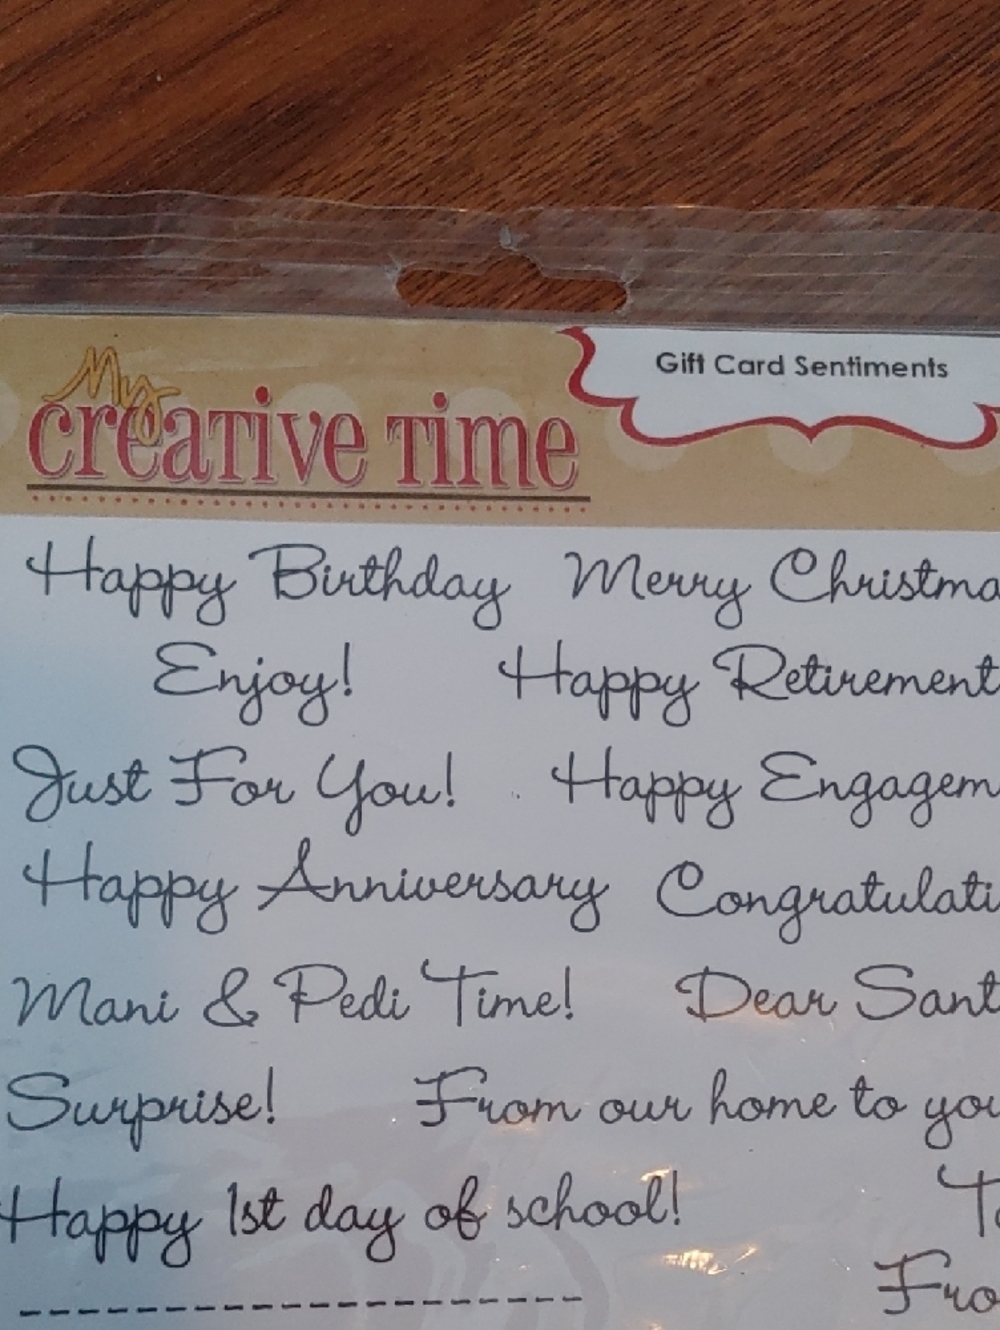 Gift Card Sentiments
My
creative Time
Happy Birthday Merry Christma
Enjoy! Happy Retirement
Just For You! Happy Engagem
Happy Anniversary Congratulati
Mani & Pedi Time! Dear Sant
Surprise! From our home to you
Happy 1st day of school! To
Fro